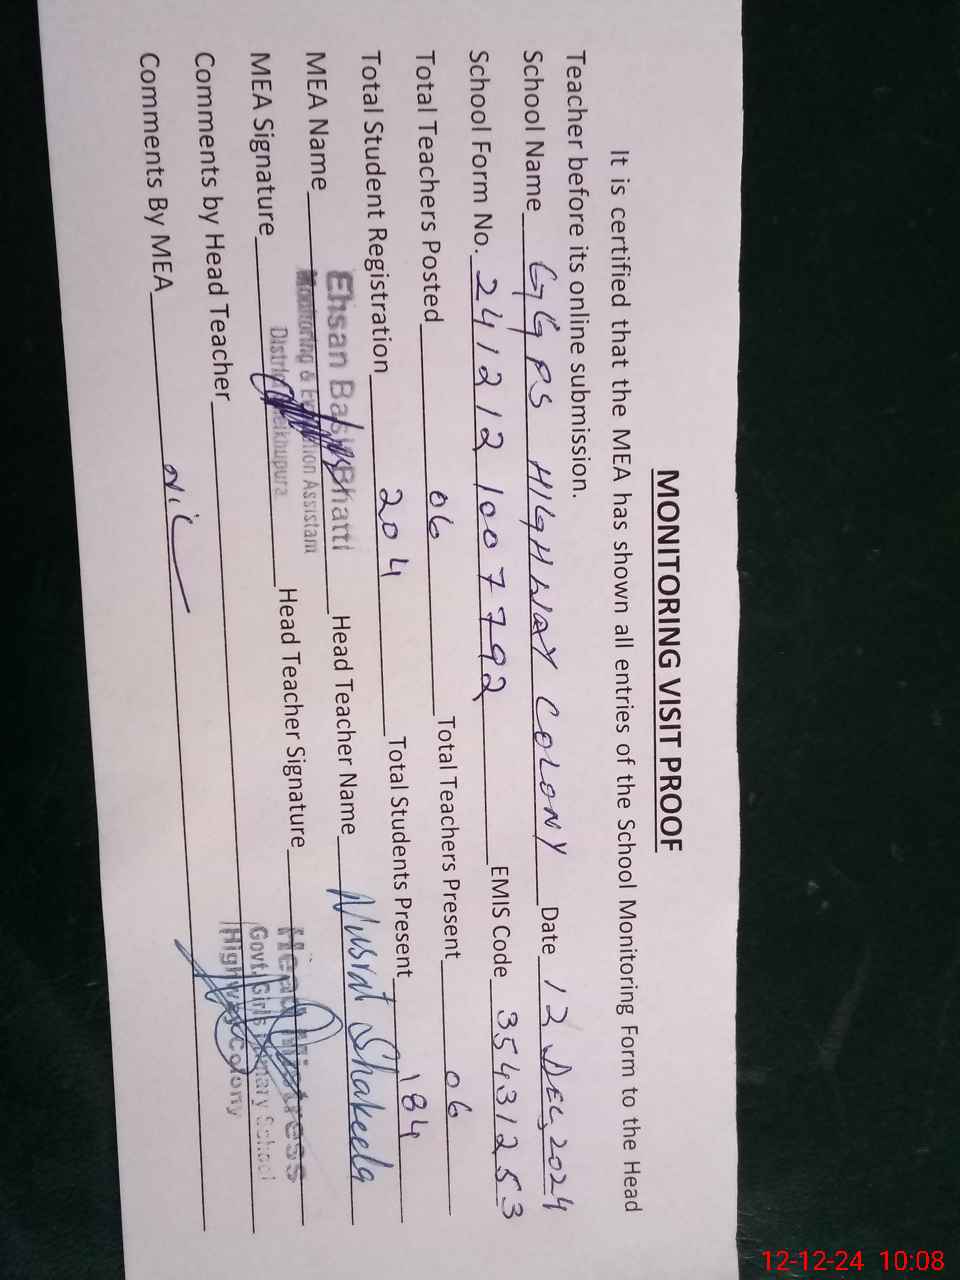 MONITORING VISIT PROOF
It is certified that the MEA has shown all entries of the School Monitoring Form to the Head
Teacher before its online submission.
School Name GGPS HIGHWAY COLONY Date 12 DEC, 2024
School Form No. 2412121007792 EMIS Code 35431253
Total Teachers Posted 06 Total Teachers Present 06
Total Student Registration 204 Total Students Present 184
MEA Name Ehsan Basir Bhatti Head Teacher Name Nusrat Shakeela
Monitoring & Evaluation Assistant
MEA Signature District Sheikhupura Head Teacher Signature Head Mistress
Govt. Girls Primary School
Highway Colony
Comments by Head Teacher
Comments By MEA Nil
12-12-24 10:08